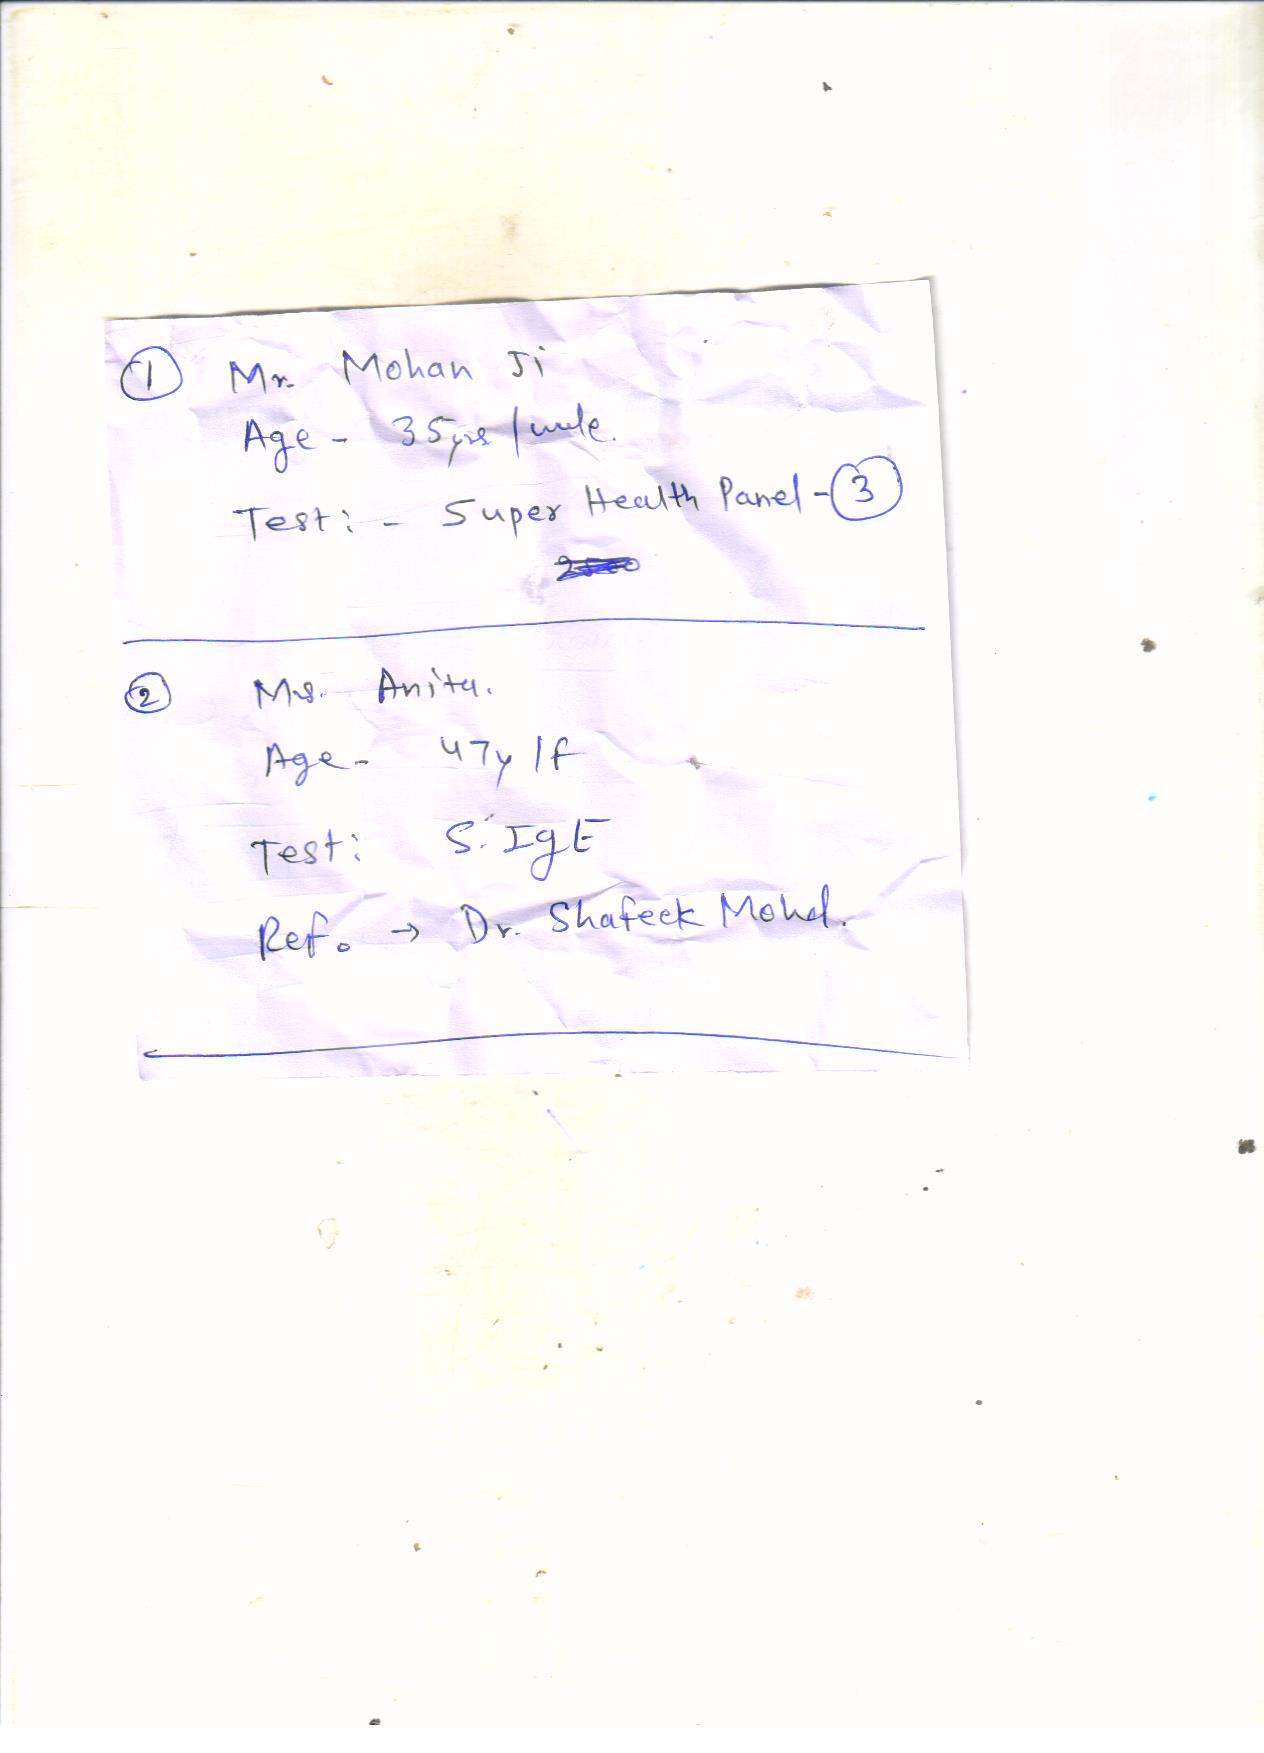 ① Mr. Mohan Ji
Age - 35yrs / male.
Test: - Super Health Panel - ③
② Ms. Anita.
Age - 47y / f
Test: S. IgE
Ref. → Dr. Shafeek Mohd.